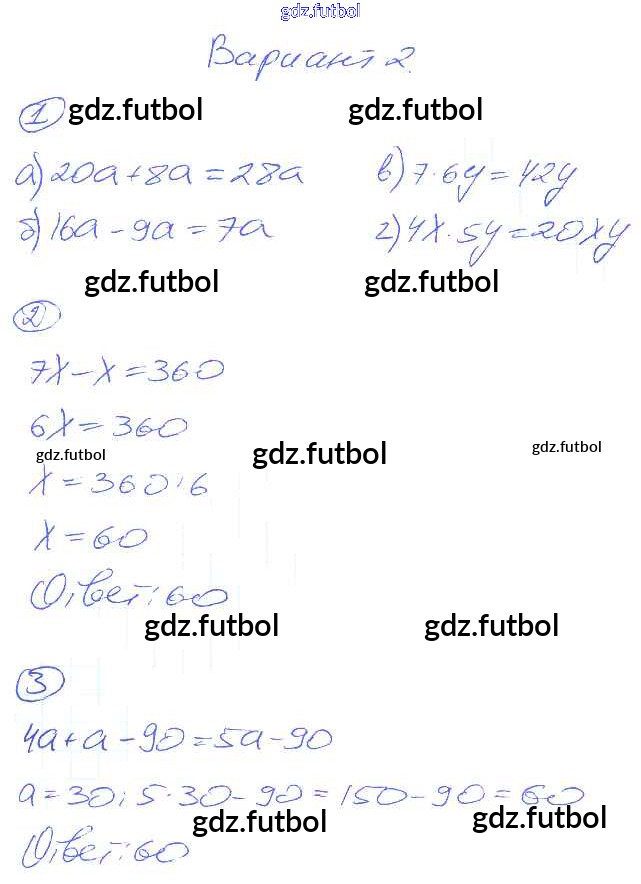 gdz.futbol
Вариант 2.
1 gdz.futbol gdz.futbol
а) 20a+8a=28a в) 7·6y=42y
б) 16a-9a=7a г) 4x·5y=20xy
gdz.futbol gdz.futbol
2
7x-x=360
6x=360
gdz.futbol gdz.futbol gdz.futbol
x=360:6
x=60
Ответ: 60
gdz.futbol gdz.futbol
3
4a+a-90=5a-90
a=30; 5·30-90=150-90=60
gdz.futbol gdz.futbol
Ответ: 60